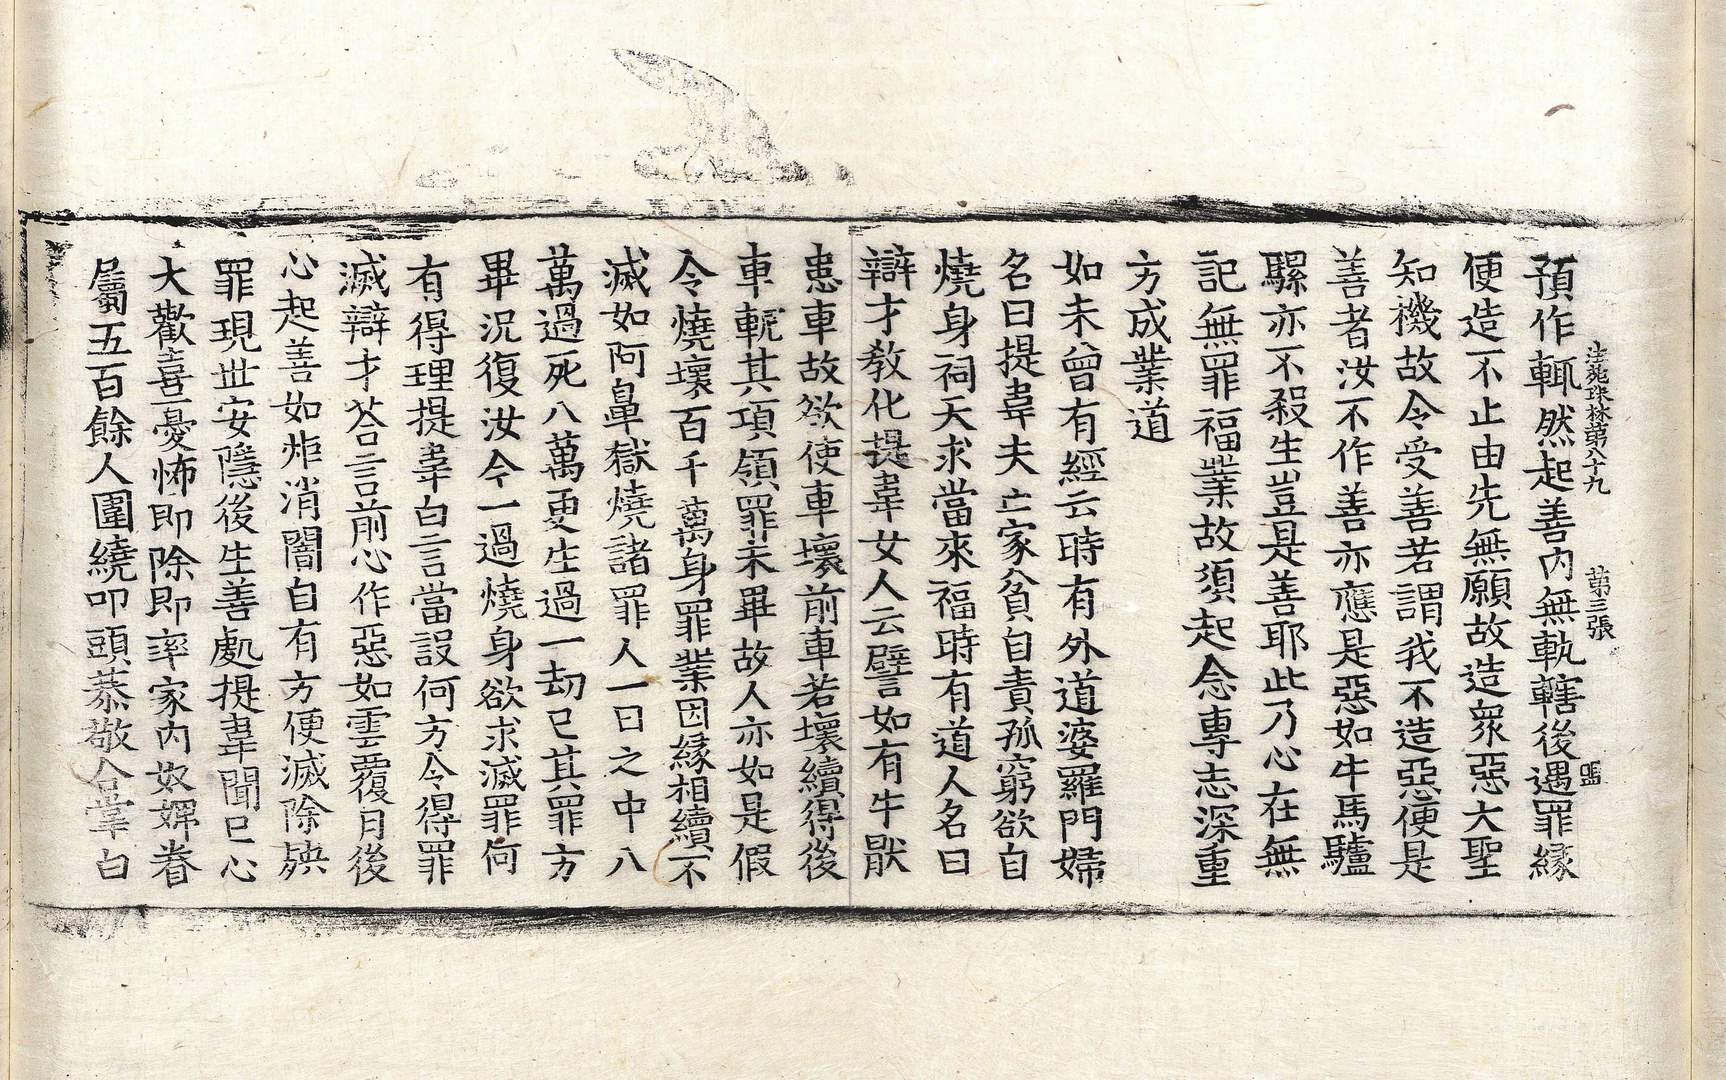 法苑珠林第八十九 第三張 㿻
預作輒然起善內無軌轄後遇罪緣
便造不止由先無願故造衆惡大聖
知機故令受善若謂我不造惡便是
善者汝不作善亦應是惡如牛馬驢
騾亦不殺生豈是善耶此乃心在無
記無罪福業故須起念專志深重
方成業道
如未曾有經云時有外道婆羅門婦
名曰提韋夫亡家貧自責孤窮欲自
燒身祠天求當來福時有道人名曰
辯才教化提韋女人云譬如有牛猒
患車故欲使車壞前車若壞續得後
車軛其項領罪未畢故人亦如是假
令燒壞百千萬身罪業因緣相續不
滅如阿鼻獄燒諸罪人一日之中八
萬過死八萬更生過一劫已其罪方
畢況復汝今一過燒身欲求滅罪何
有得理提韋白言當設何方令得罪
滅辯才荅言前心作惡如雲覆月後
心起善如炬消闇自有方便滅除殃
罪現世安隱後生善處提韋聞已心
大歡喜憂怖即除即率家內奴婢眷
屬五百餘人圍繞叩頭恭敬合掌白